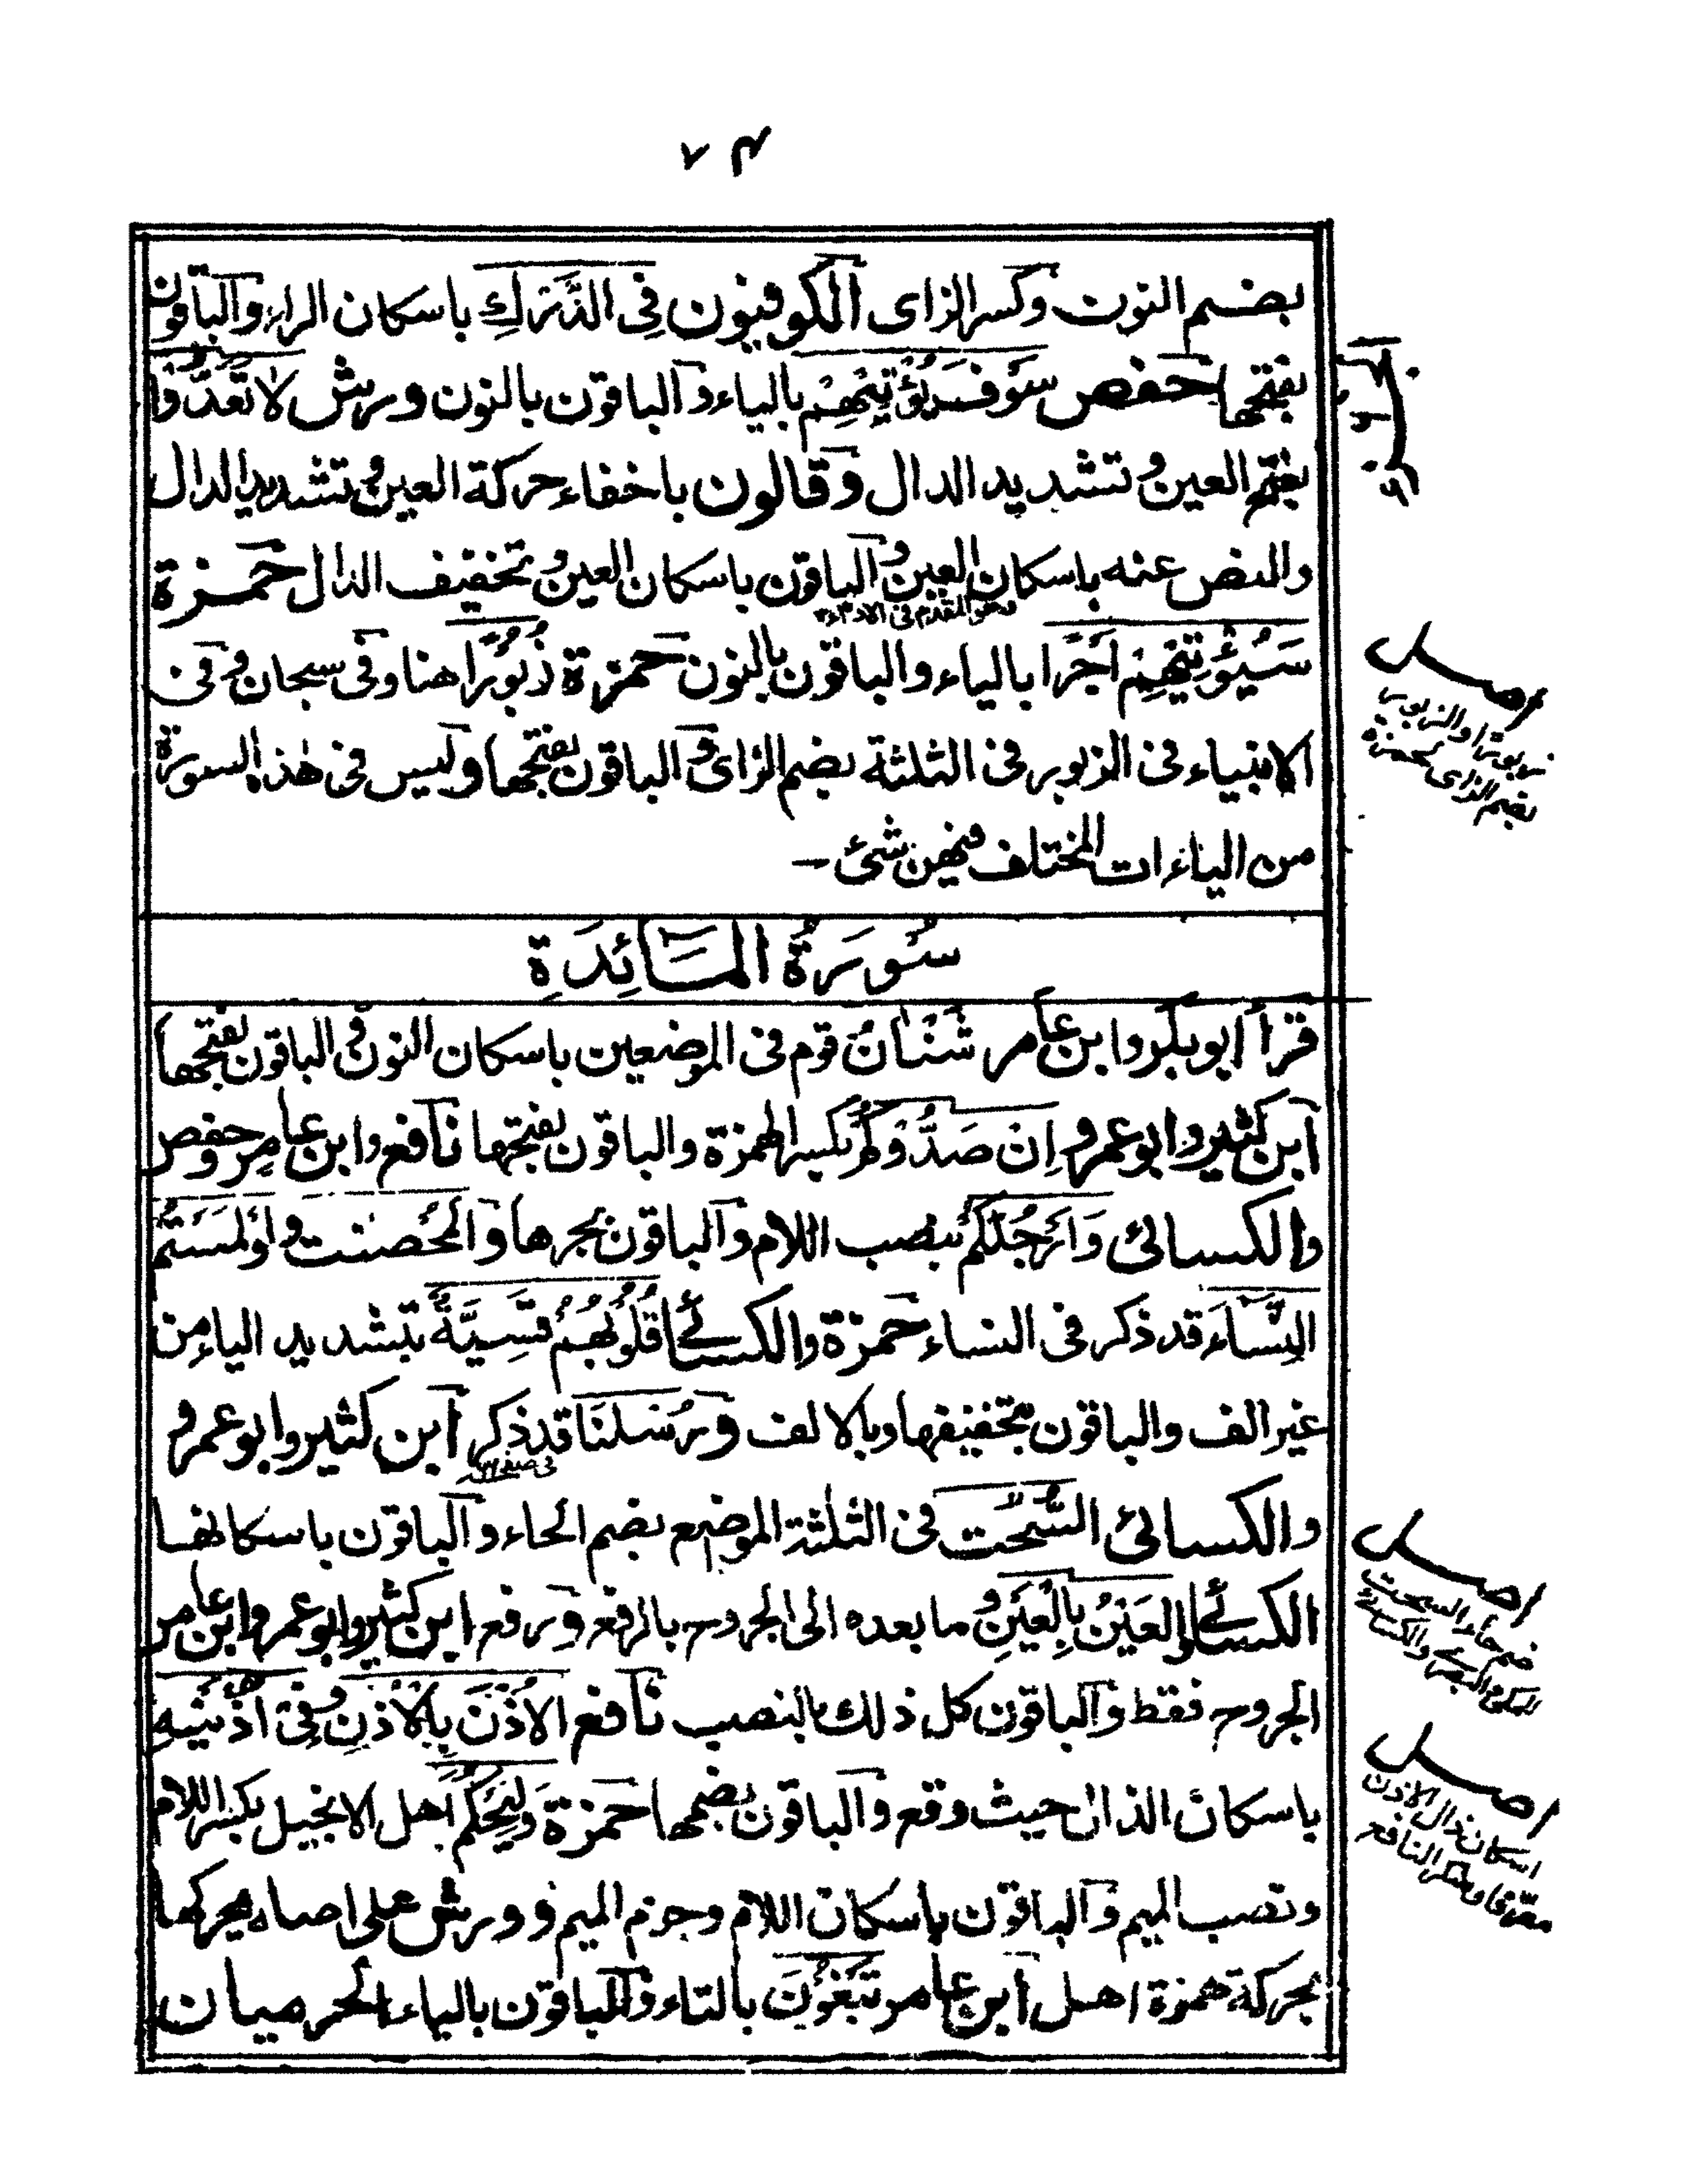 ٧٤
بضم النون وكسر الزاى الكوفيون فِى الدَّرْكِ باسكان الراء والباقون
بفتحها حفص سَوْفَ يُؤْتِيْهِمْ بالياء والباقون بالنون ورش لا تَعَدُّوْا
بفتح العين وتشديد الدال وقالون باخفاء حركة العين وتشديد الدال
والنص عنه باسكان العين والباقون باسكان العين وتخفيف الدال حمزة
سَيُؤْتِيْهِمْ اَجْرًا بالياء والباقون بالنون حمزة زُبُوْرًا هنا وفى سبحان وفى
الانبياء فى الزبور فى الثلثة بضم الزاى والباقون بفتحها وليس فى هذه السورة
من الياءات المختلف فيهن شئ -
سُوْرَةُ الْمَائِدَةِ
قرأ ابو بكر وابن عامر شَنْاٰنُ قوم فى الموضعين باسكان النون والباقون بفتحها
ابن كثير وابو عمرو اِنْ صَدُّوْكُمْ بكسر الهمزة والباقون بفتحها نافع وابن عامر وحفص
والكسائى وَاَرْجُلَكُمْ بنصب اللام والباقون بجرها والمُحْصَنٰت و اَوْ لٰمَسْتُمُ
النِّسَاءَ قد ذكر فى النساء حمزة والكسائى قُلُوْبَهُمْ قَسِيَّةً بتشديد الياء من
غير الف والباقون بتخفيفها وبالالف ورُسُلُنَا قد ذكر ابن كثير وابو عمرو
والكسائى السُّحُت فى الثلثة المواضع بضم الحاء والباقون باسكانها
الكسائى والعَيْنُ بِالْعَيْنِ وما بعده الى الجروح بالرفع ورفع ابن كثير وابو عمرو وابن عامر
الجروح فقط والباقون كل ذلك بالنصب نافع الاُذْنَ بِالْاُذْنِ وفِىْ اُذْنَيْهِ
باسكان الذال حيث وقع والباقون بضمها حمزة وَلِيَحْكُمَ اهل الانجيل بكسر اللام
ونصب الميم والباقون باسكان اللام وجزم الميم وورش على اصله يحركها
بحركة همزة اهل ابن عامر تَبْغُوْنَ بالتاء والباقون بالياء الحرميان
اصل
زبورا والزبور
بضم الزاى لحمزة
اصل
ضم حاء السحت
اصل
اسكان ذال الاذن